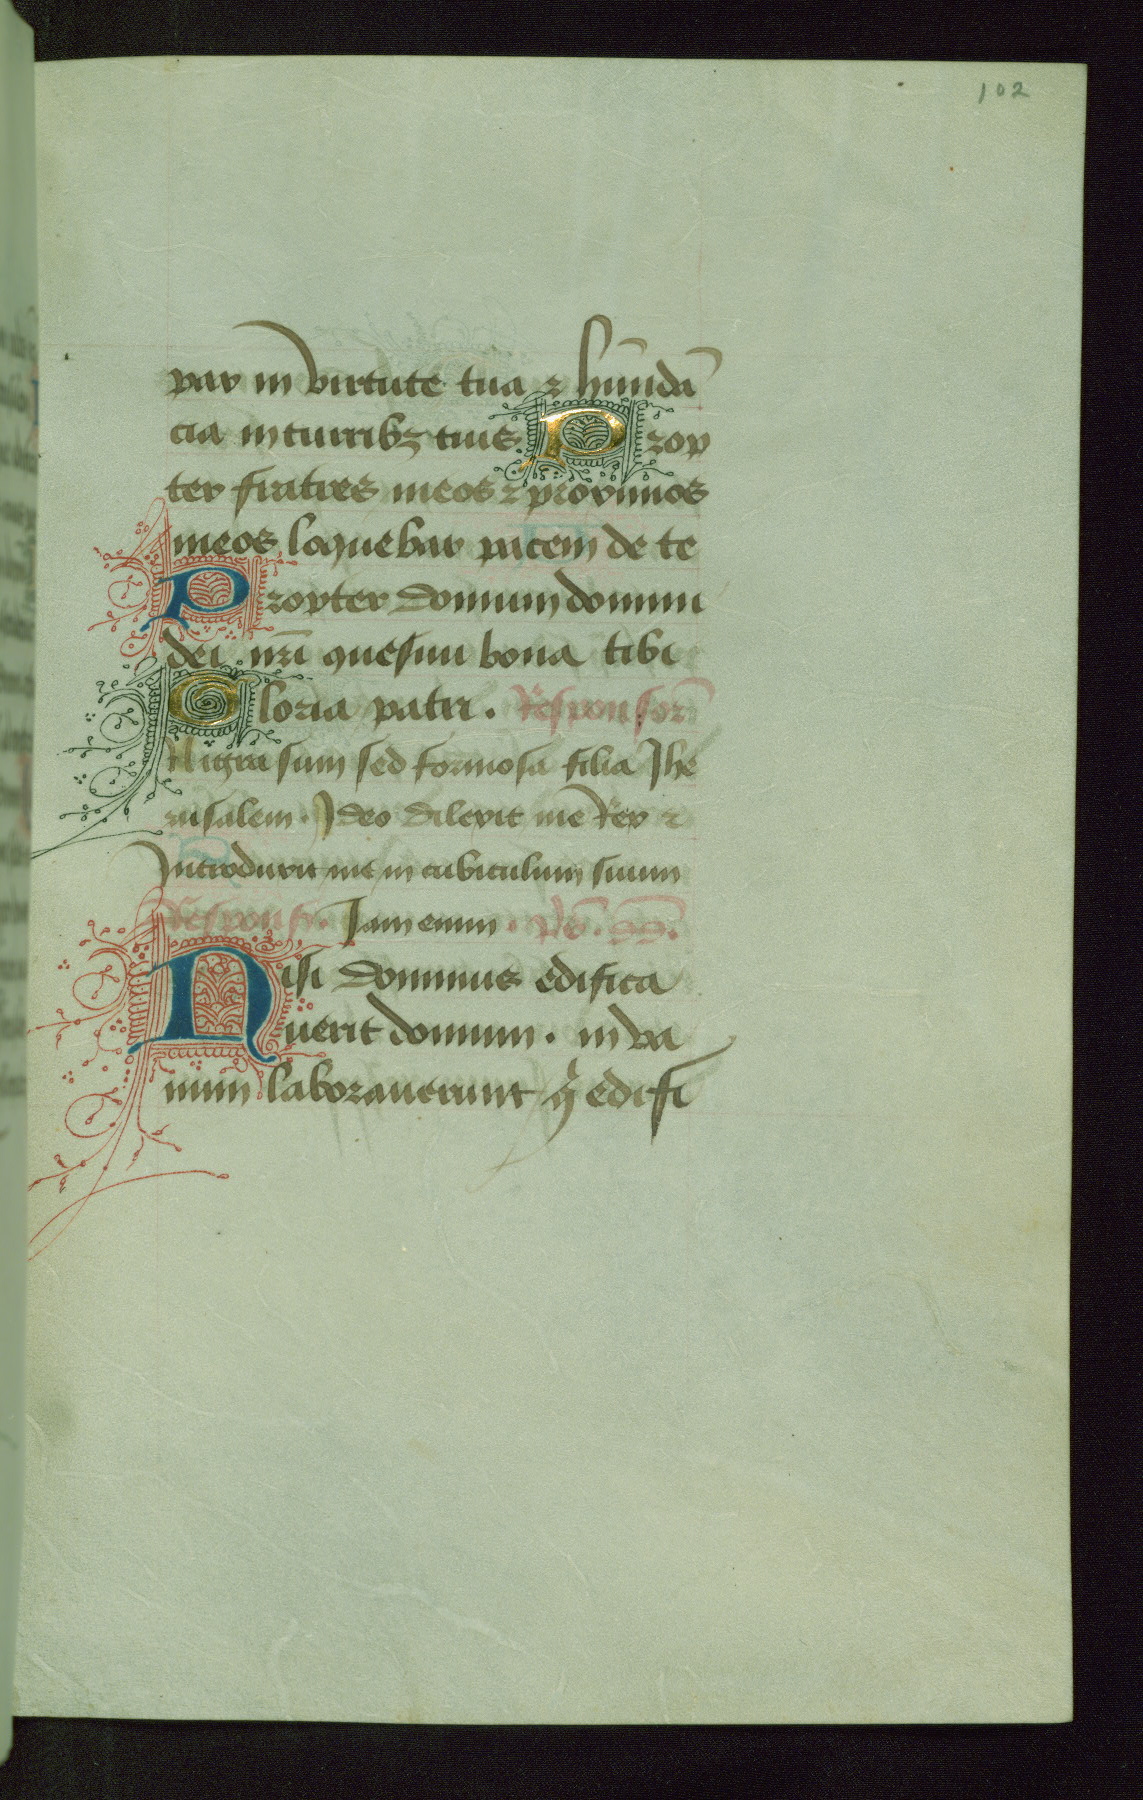 102
pax in virtute tua ⁊ hu̅nda̅
cia in turribꝫ tuis Prop
ter fratres meos ⁊ proximos
meos loquebar pacem de te
Propter domum domini
dei nr̅i quesiui bona tibi
Gloria patri. Responsor̅
Nigra sum sed formosa filia Jhe
rusalem. Ideo dilexit me Rex ⁊
Introduxit me in cubiculum suum
Respons. Iam enim. ps̅.
Nisi dominus edifica
uerit domum. in va
num laborauerunt qͥ edifi